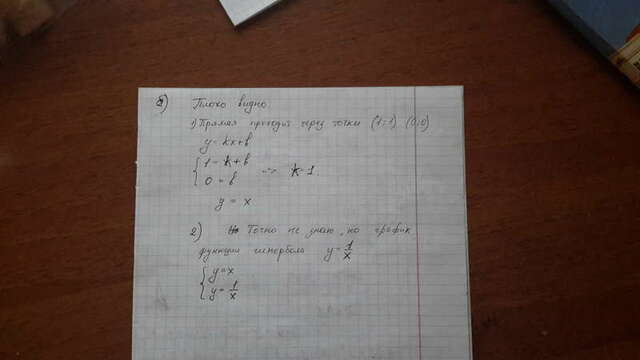 8) Плохо видно
1) Прямая проходит через точки (1;1) (0;0)
y = kx+b
{ 1 = k + b
0 = b => k=1
y = x
2) Точно не знаю, но график
функции гипербола y = 1/x
{ y = x
y = 1/x